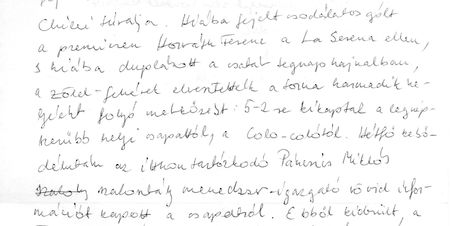 Chilei túrája. Hiába fejelt csodálatos gólt
a premieren Horváth Ferenc a La Serena ellen,
s hiába duplázott a csatár tegnap hajnalban,
a zöld-fehérek elvesztették a torna harmadik he-
lyéért folyó mérkőzést: 5-2-re kikaptak a legnép-
szerűbb helyi csapattól, a Colo-colótól. Hétfő késő-
délután az itthon tartózkodó Páncsics Miklós
szakosztály menedzser-igazgató rövid infor-
mációt kapott a csapatról. Ebből kiderült, a